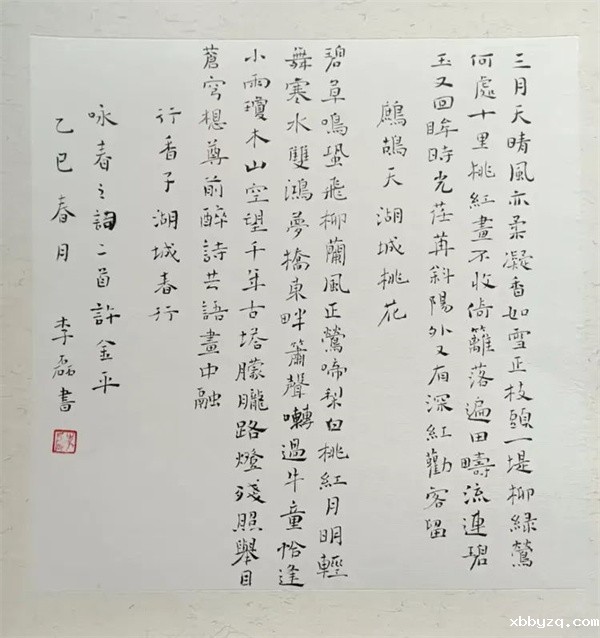 三月天晴風亦柔凝香如雪正枝頭一堤柳綠鶯
何處十里桃紅畫不收倚籬落遍田疇流連碧
玉又回眸時光荏苒斜陽外又有深紅勸客留
鷓鴣天湖城桃花
碧草鳴蛩飛柳蘭風正鶯啼梨白桃紅月明輕
舞寒水雙鴻夢橋東畔簫聲囀過牛童恰逢
小雨瓊木山空望千年古塔朦朧路燈殘照舉目
蒼穹想尊前醉詩共語畫中融
行香子湖城春行
咏春之詞二首許金平
乙巳春月 李磊書
xbbyzq.com